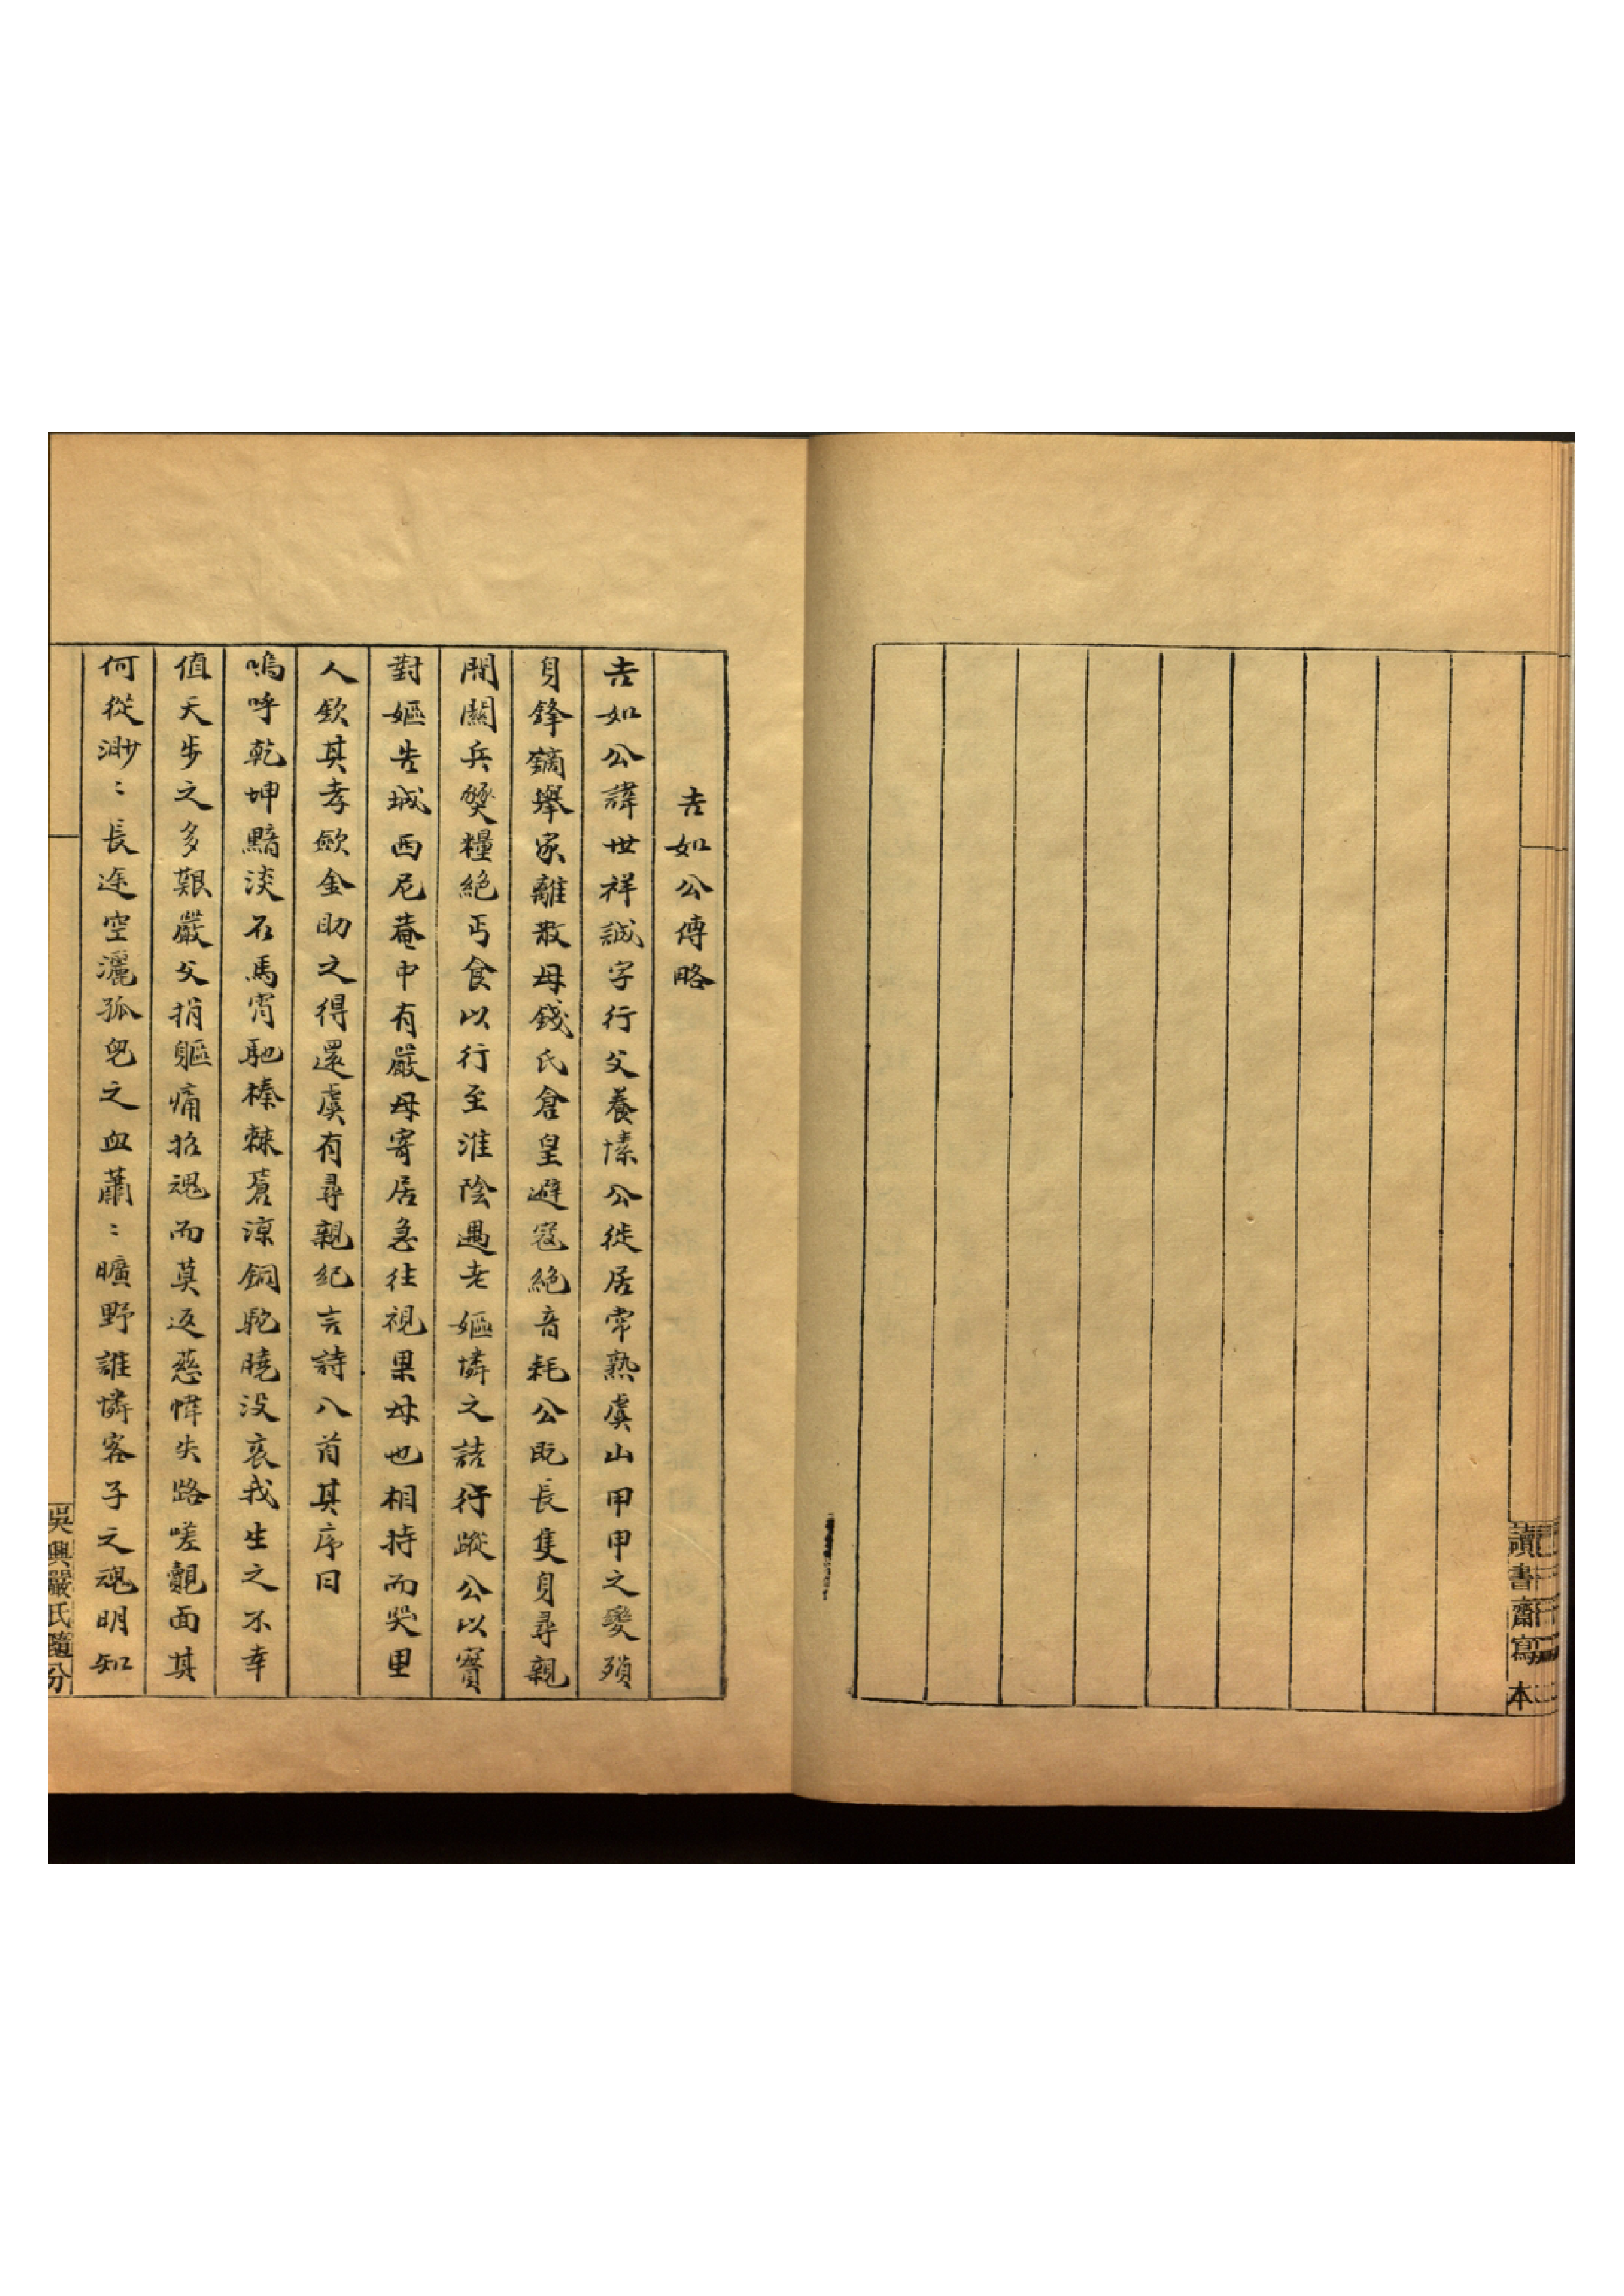 讀書齋寫本
吉如公傳略
吉如公諱世祥誠字行父養愫公徙居常熟虞山甲申之變殞
身鋒鏑舉家離散母錢氏倉皇避寇絕音耗公既長隻身尋親
間關兵燹糧絕丐食以行至淮陰遇老嫗憐之詰行蹤公以實
對嫗告城西尼菴中有嚴母寄居急往視果母也相持而哭里
人欽其孝歛金助之得還虞有尋親紀言詩八首其序曰
嗚呼乾坤黯淡石馬宵馳榛棘蒼涼銅駝曉沒哀我生之不幸
值天步之多艱嚴父捐軀痛招魂而莫返慈幃失路嗟覿面其
何從渺〻長途空灑孤兒之血蕭〻曠野誰憐客子之魂明知
吳興嚴氏隨分